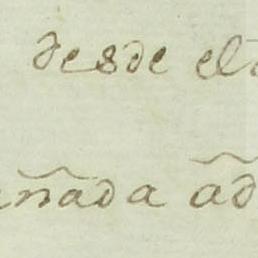 desde el
ñada ad